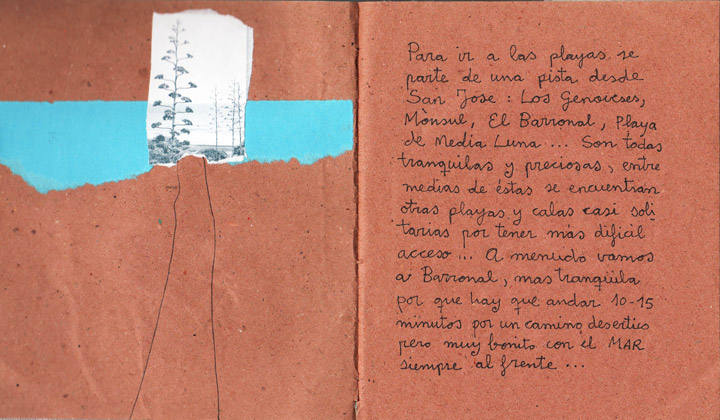 Para ir a las playas se
parte de una pista desde
San Jose : Los Genoveses,
Mònsul, El Barronal, Playa
de Media Luna ... Son todas
tranquilas y preciosas, entre
medias de éstas se encuentran
otras playas y calas casi soli
tarias por tener más dificil
acceso ... A menudo vamos
a Barronal, mas tranqüila
por que hay que andar 10-15
minutos por un camino desertico
pero muy bonito con el MAR
siempre al frente ...